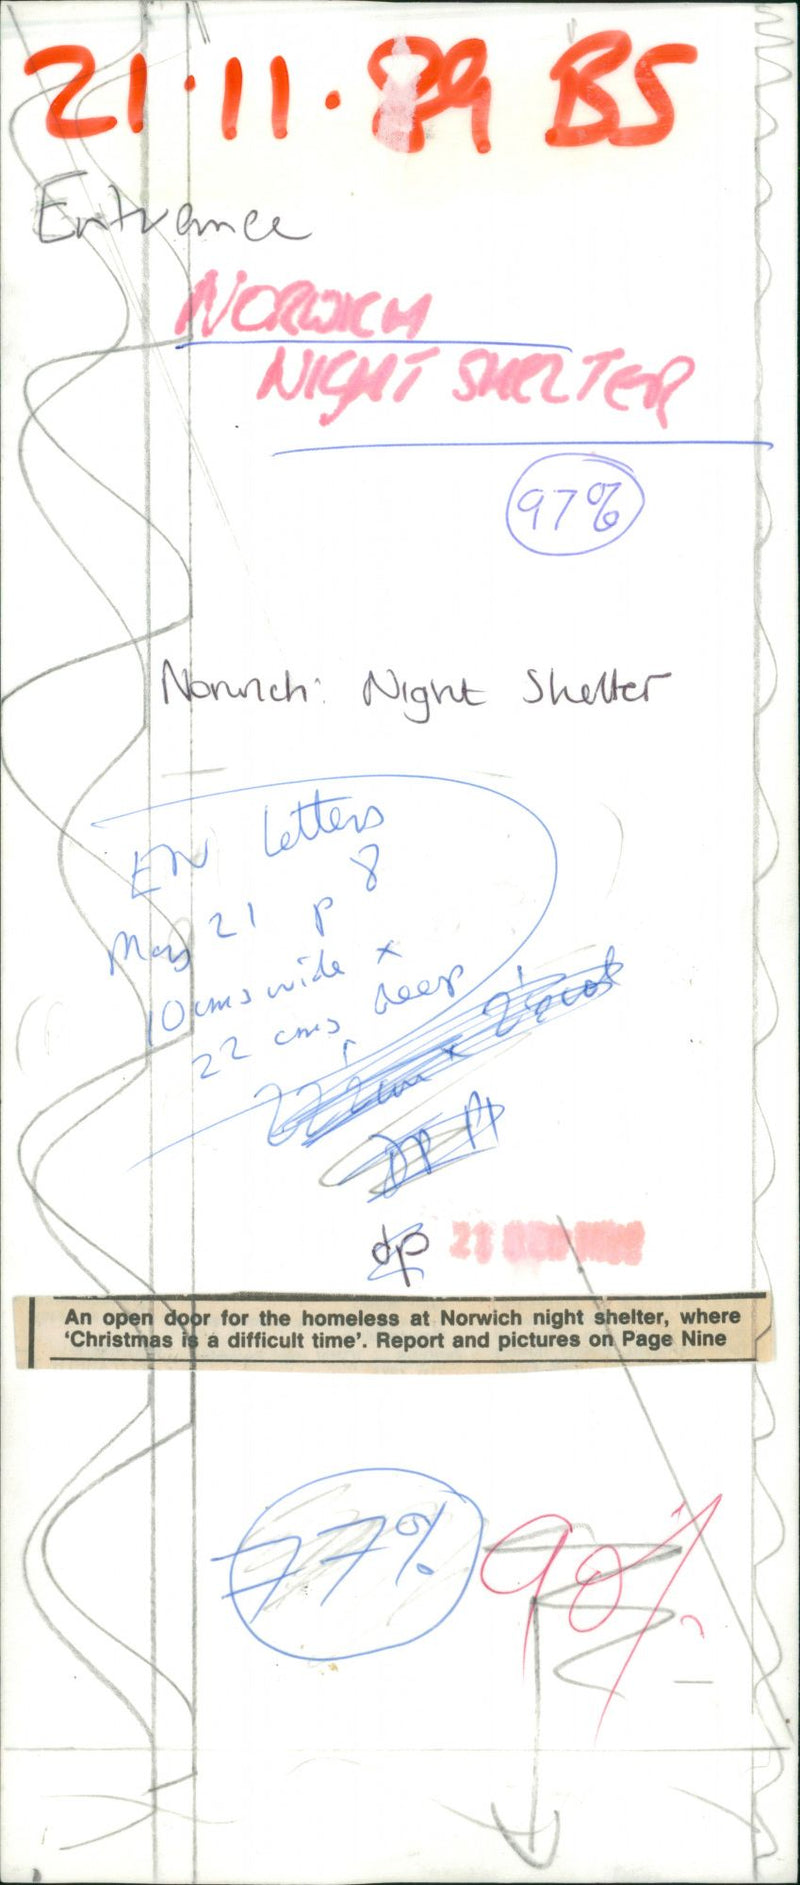 21.11.89 BS
Entrance
NORWICH
NIGHT SHELTER
97%
Norwich: Night Shelter
EN letters
May 21 p 8
10 cms wide x
22 cms deep
dp
21
An open door for the homeless at Norwich night shelter, where
‘Christmas is a difficult time’. Report and pictures on Page Nine
77%
90%